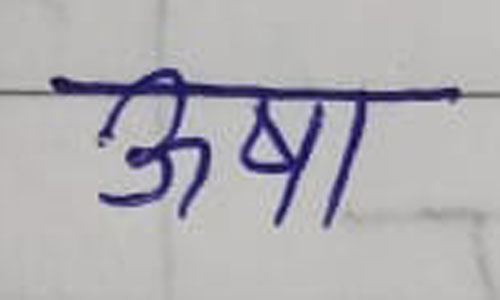 ऊषा